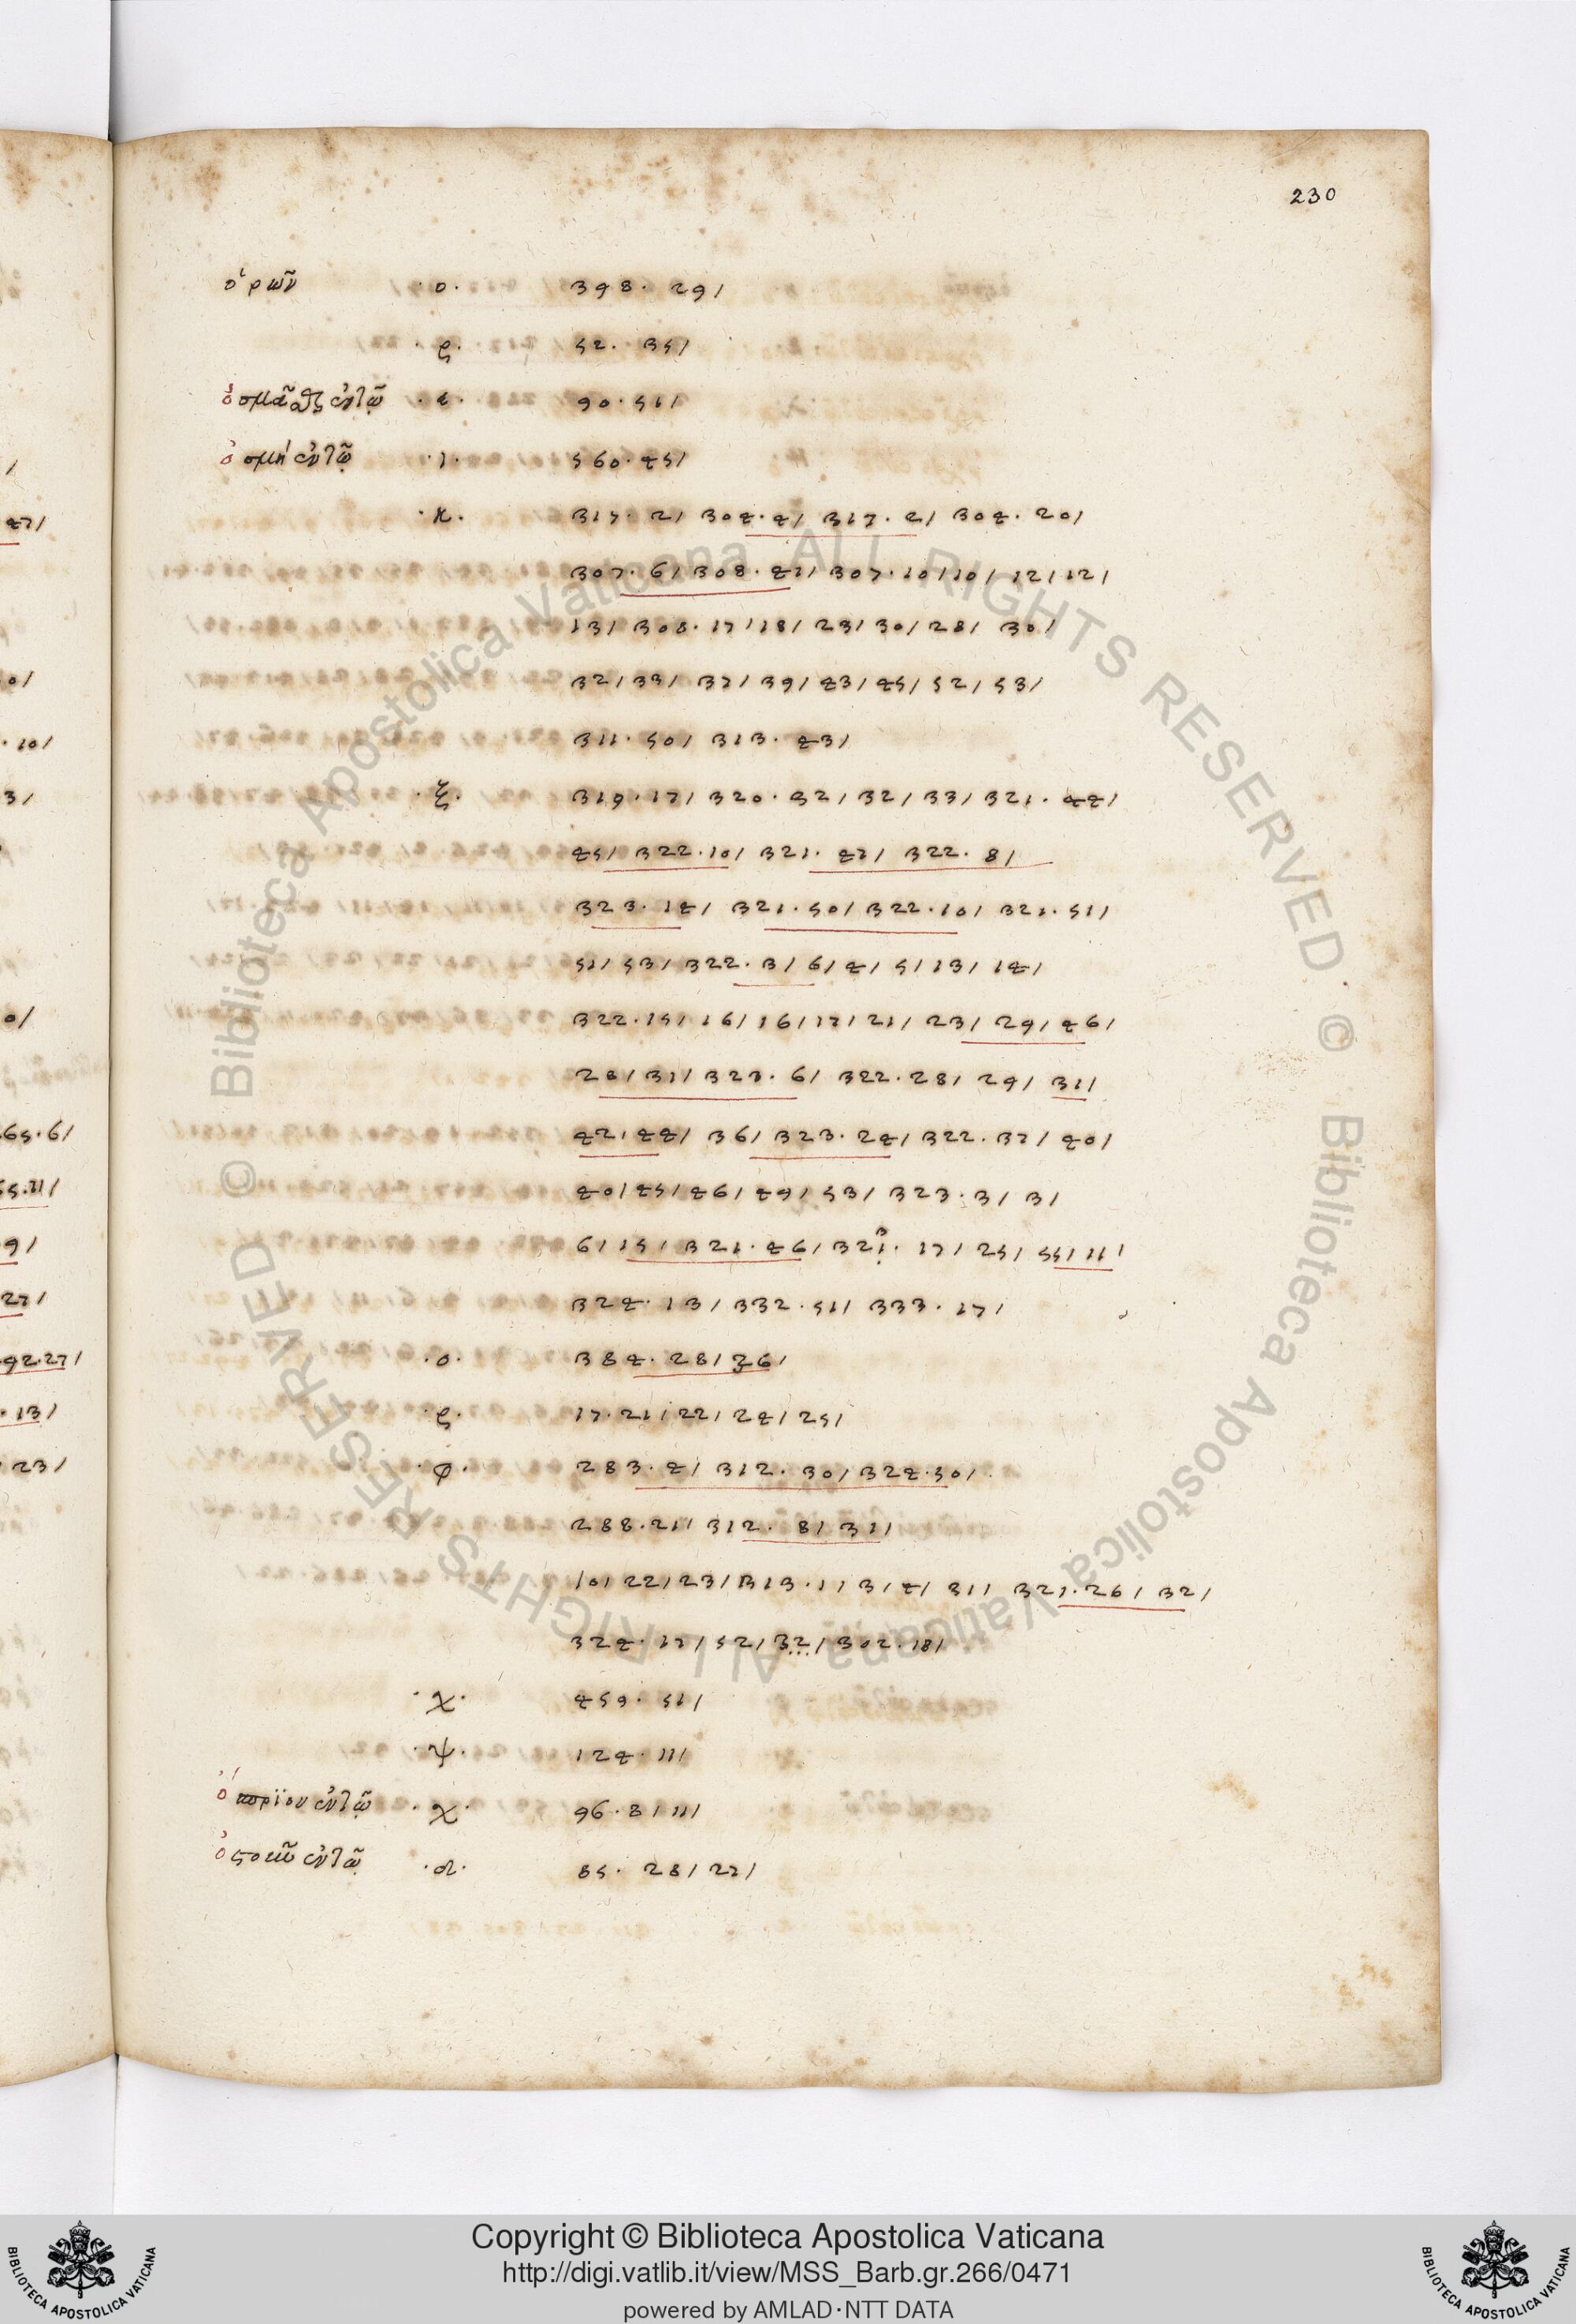 230
ὁρῶν ·ο· 398. 29/
·ρ· 52. 35/
ἐν τῷ ·ε· 90. 51/
ὀσμὴ ἐν τῷ ·ι· 560. 45/
·κ· 317. 2/ 304. 4/ 317. 2/ 304. 20/
307. 6/ 308. 41/ 307. 10/10/ 12/12/
13/ 308. 17/18/ 23/ 30/ 28/ 30/
32/33/ 37/39/43/45/52/53/
311. 50/ 313. 43/
·ξ· 319. 17/ 320. 32/32/33/ 321. 44/
45/ 322. 10/ 321. 47/ 322. 8/
323. 14/ 321. 50/ 322. 10/ 321. 51/
51/53/ 322. 3/6/4/5/13/14/
322. 15/16/16/17/21/23/29/46/
28/31/ 323. 6/ 322. 28/ 29/ 31/
42/44/ 36/ 323. 24/ 322. 37/ 40/
40/45/46/49/53/ 323. 3/ 3/
6/15/ 321. 46/ 17/ 25/ 55/11/
324. 13/ 332. 51/ 333. 17/
·ο· 384. 28/36/
·ρ· 17. 21/22/24/25/
·φ· 283. 4/ 312. 30/ 324. 50/
288. 21/ 312. 8/ 31/
10/22/23/ 313. 1/3/4/ 31/ 321. 26/ 32/
324. 17/52/32/ 302. 18/
·χ· 459. 51/
·ψ· 124. 11/
ἐν τῷ ·χ· 96. 8/11/
ἐν τῷ 85. 28/27/
Copyright © Biblioteca Apostolica Vaticana
http://digi.vatlib.it/view/MSS_Barb.gr.266/0471
powered by AMLAD·NTT DATA
BIBLIOTECA APOSTOLICA VATICANA
BIBLIOTECA APOSTOLICA VATICANA
© Biblioteca Apostolica Vaticana ALL RIGHTS RESERVED
© Biblioteca Apostolica Vaticana ALL RIGHTS RESERVED